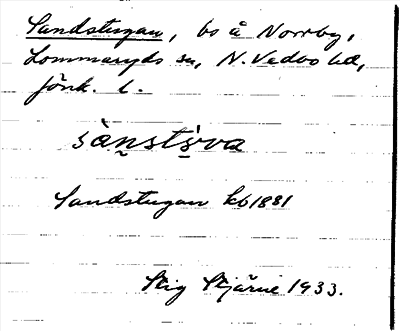 Sandstugan, bs å Norrby,
Lommaryds sn, N. Vedbo hd,
Jönk. l.
sànstùva
Sandstugan kb 1881
Stig Skjärne 1933.